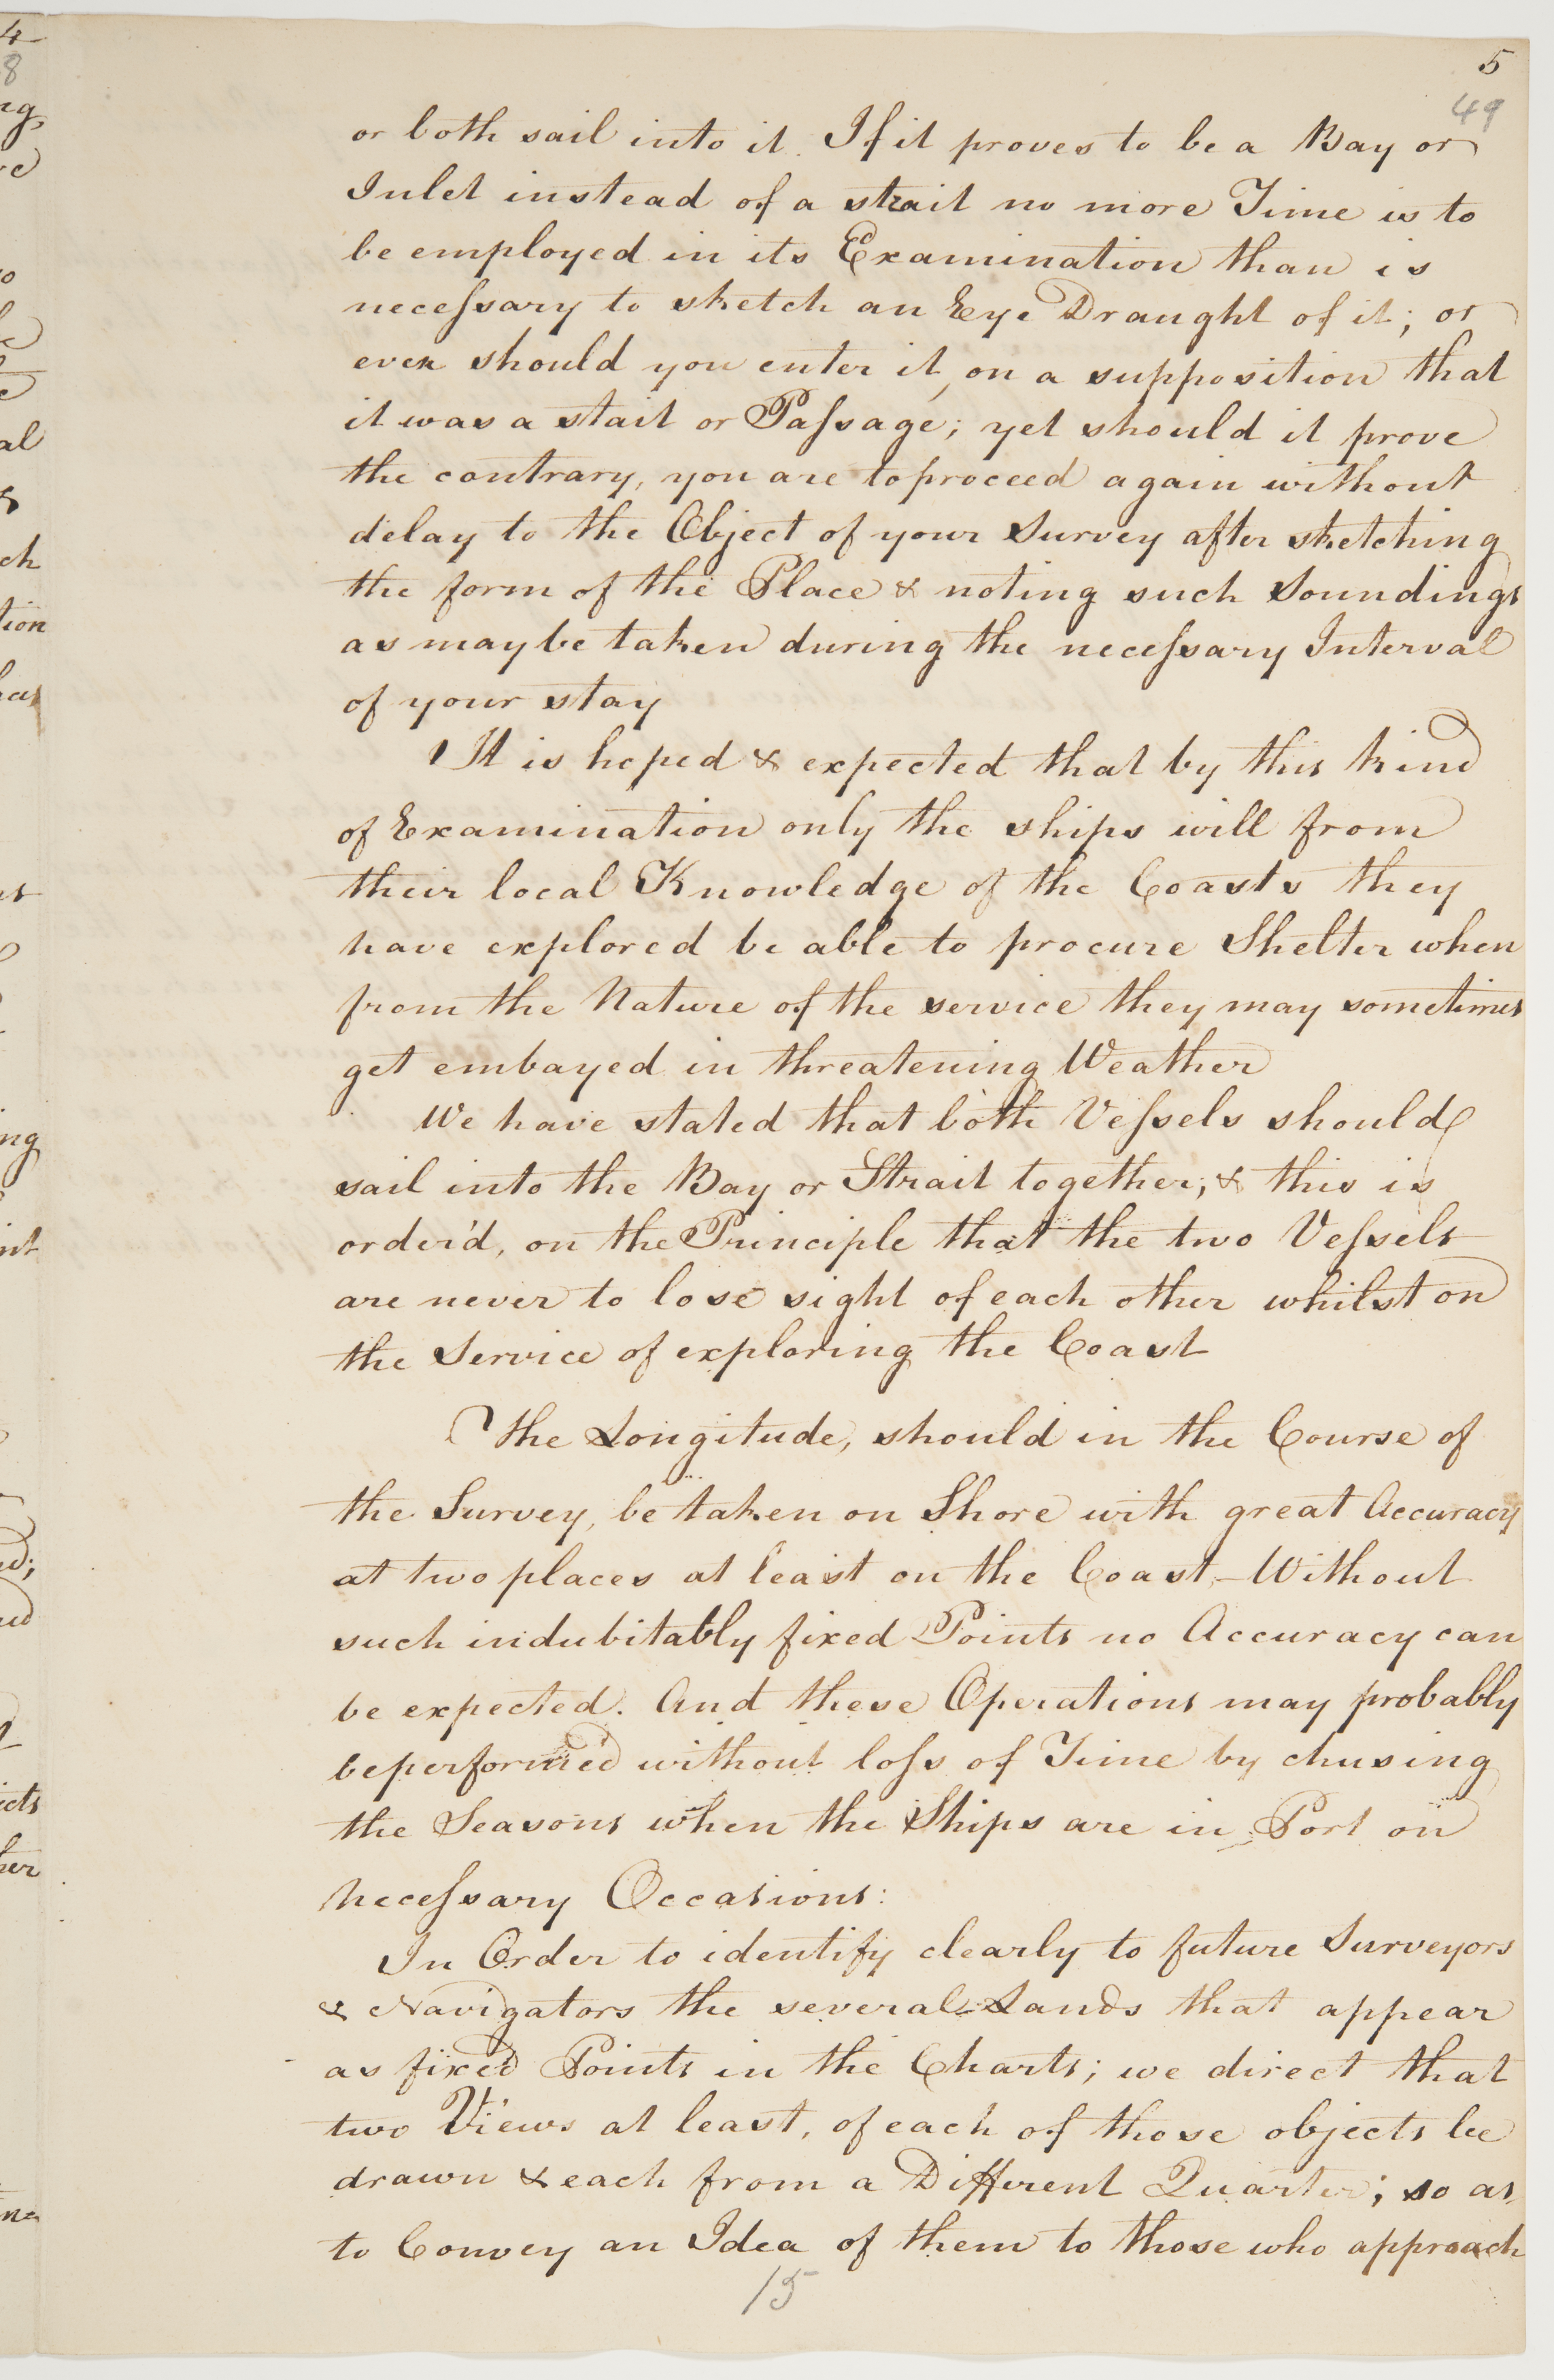 5
49
or both sail into it. If it proves to be a Bay or
Inlet instead of a strait no more Time is to
be employed in its Examination than is
neceſsary to sketch an Eye Draught of it; or
even should you enter it, on a supposition that
it was a stait or Paſsage; yet should it prove
the contrary, you are to proceed again without
delay to the Object of your Survey after sketching
the form of the Place & noting such Soundings
as may be taken during the neceſsary Interval
of your stay
It is hoped & expected that by this kind
of Examination only the ships will from
their local Knowledge of the Coasts they
have explored be able to procure Shelter when
from the Nature of the service they may sometimes
get embayed in threatening Weather
We have stated that both Veſsels should
sail into the Bay or Strait together; & this is
order'd, on the Principle that the two Veſsels
are never to lose sight of each other whilst on
the Service of exploring the Coast
The Longitude, should in the Course of
the Survey, be taken on Shore with great Accuracy
at two places at least on the Coast,—Without
such indubitably fixed Points no Accuracy can
be expected. And these Operations may probably
be performed without loſs of Time by chusing
the Seasons when the Ships are in Port on
neceſsary Occasions:
In Order to identify clearly to future Surveyors
& Navigators the several Lands that appear
as fixed Points in the Charts; we direct that
two Views at least, of each of those objects be
drawn & each from a Different Quarter; so as
to Convey an Idea of them to those who approach
15